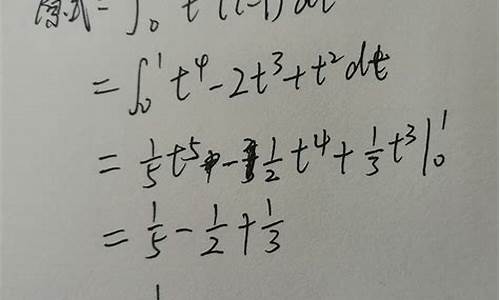 原式=∫₀ t (t-1) dt
=∫₀¹ t⁴-2t³+t² dt
=1/5 t⁵ - 1/2 t⁴ + 1/3 t³ |₀¹
=1/5 - 1/2 + 1/3
1